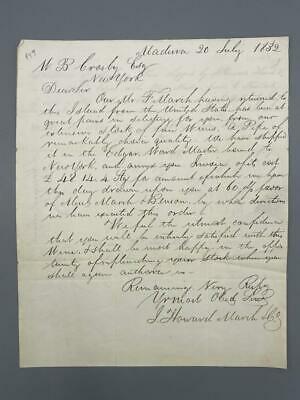 Madeira 20 July 1832
W B Crosby Esq
New York
Dear Sir
Our Mr F. March having returned to
this Island from the United States has been at
great pains in selecting for you from our
extensive stock of fine Wines. a Pipe of
remarkably choice quality We have shipped
it in the Edgar Master bound to
New York and annex you Invoice of its cost
£ 48.14.4 Stg for amount of which we have
this day drawn upon you at 60 favor
of Mess March & Benson by whose direction
we have executed this order
We feel the utmost confidence
that you will be entirely satisfied with this
Wine, & shall be most happy in the oppor
tunity of replenishing your Stock when you
shall again authorize us
Remaining Very Resp
Yr most Obed Servts
J. Howard March & Co